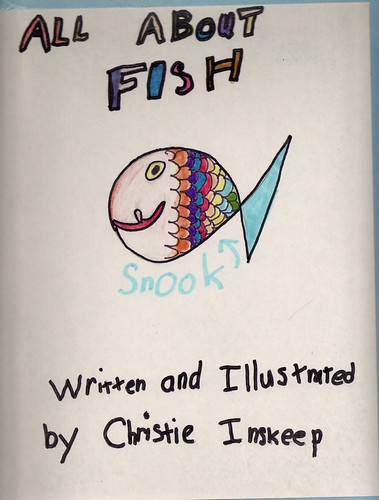 ALL ABOUT
FISH
Snook
Written and Illustrated
by Christie Inskeep